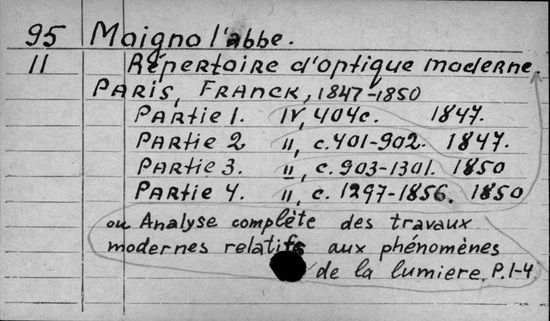 95 Moigno l'abbe.
11 Répertoire d'optique moderne
Paris, Franck, 1847-1850
Partie 1. IV, 404c. 1847.
Partie 2 II, c. 401-902. 1847.
Partie 3. II, c. 903-1301. 1850
Partie 4. II, c. 1297-1856. 1850
ou Analyse complète des travaux
modernes relatifs aux phénomènes
de la lumiere. P. 1-4